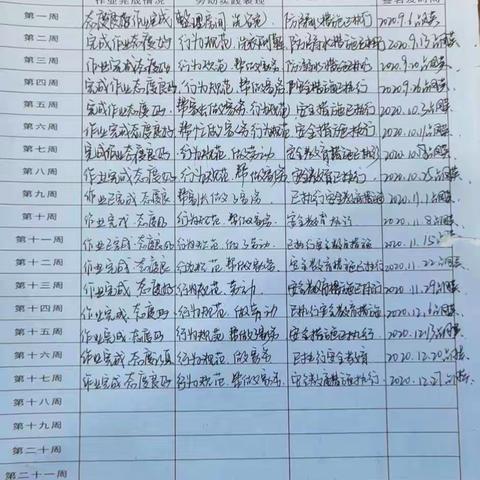 作业完成情况 劳动实践表现 签名及时间
第一周 态度良好作业完成 整理房间 防溺水措施已执行 2020.9.6
第二周 完成作业态度好 行为规范 防溺水措施已执行 2020.9.13
第三周 作业完成态度好 行为规范 帮做家务 防溺水措施已执行 2020.9.20
第四周 完成作业态度好 行为规范 帮做家务 安全措施已执行 2020.9.26
第五周 完成作业态度良好 帮家长做家务 行为规范 安全措施已执行 2020.10.3
第六周 作业完成态度良好 帮忙做家务 行为规范 安全措施已执行 2020.10.
第七周 完成作业态度良好 行为规范 做劳动 安全教育措施已执行 2020.10.
第八周 作业完成 态度良好 行为规范 帮做家务 安全措施已执行 2020.10.25
第九周 作业完成 态度好 帮家长做了家务 已执行安全教育措施 2020.11.1
第十周 作业完成 态度好 行为规范 帮做家务 安全教育 2020.11.8
第十一周 作业已完成 态度好 行为规范 做了劳动 已执行安全教育措施 2020.11.15
第十二周 作业完成 态度良 行为规范 帮做家务 安全教育措施已执行 2020.11.22
第十三周 作业完成 态度好 行为规范 劳动 安全教育措施已执行 2020.11.29
第十四周 作业完成 态度好 行为规范 做劳动 已执行安全教育措施 2020.12.6
第十五周 作业完成 态度好 行为规范 帮做家务 安全措施已执行 2020.12.13
第十六周 作业完成 态度认真 行为规范 做家务 已执行安全教育 2020.12.20
第十七周 作业完成 态度良好 行为规范 帮做家务 安全教育措施已执行 2020.12.27
第十八周
第十九周
第二十周
第二十一周